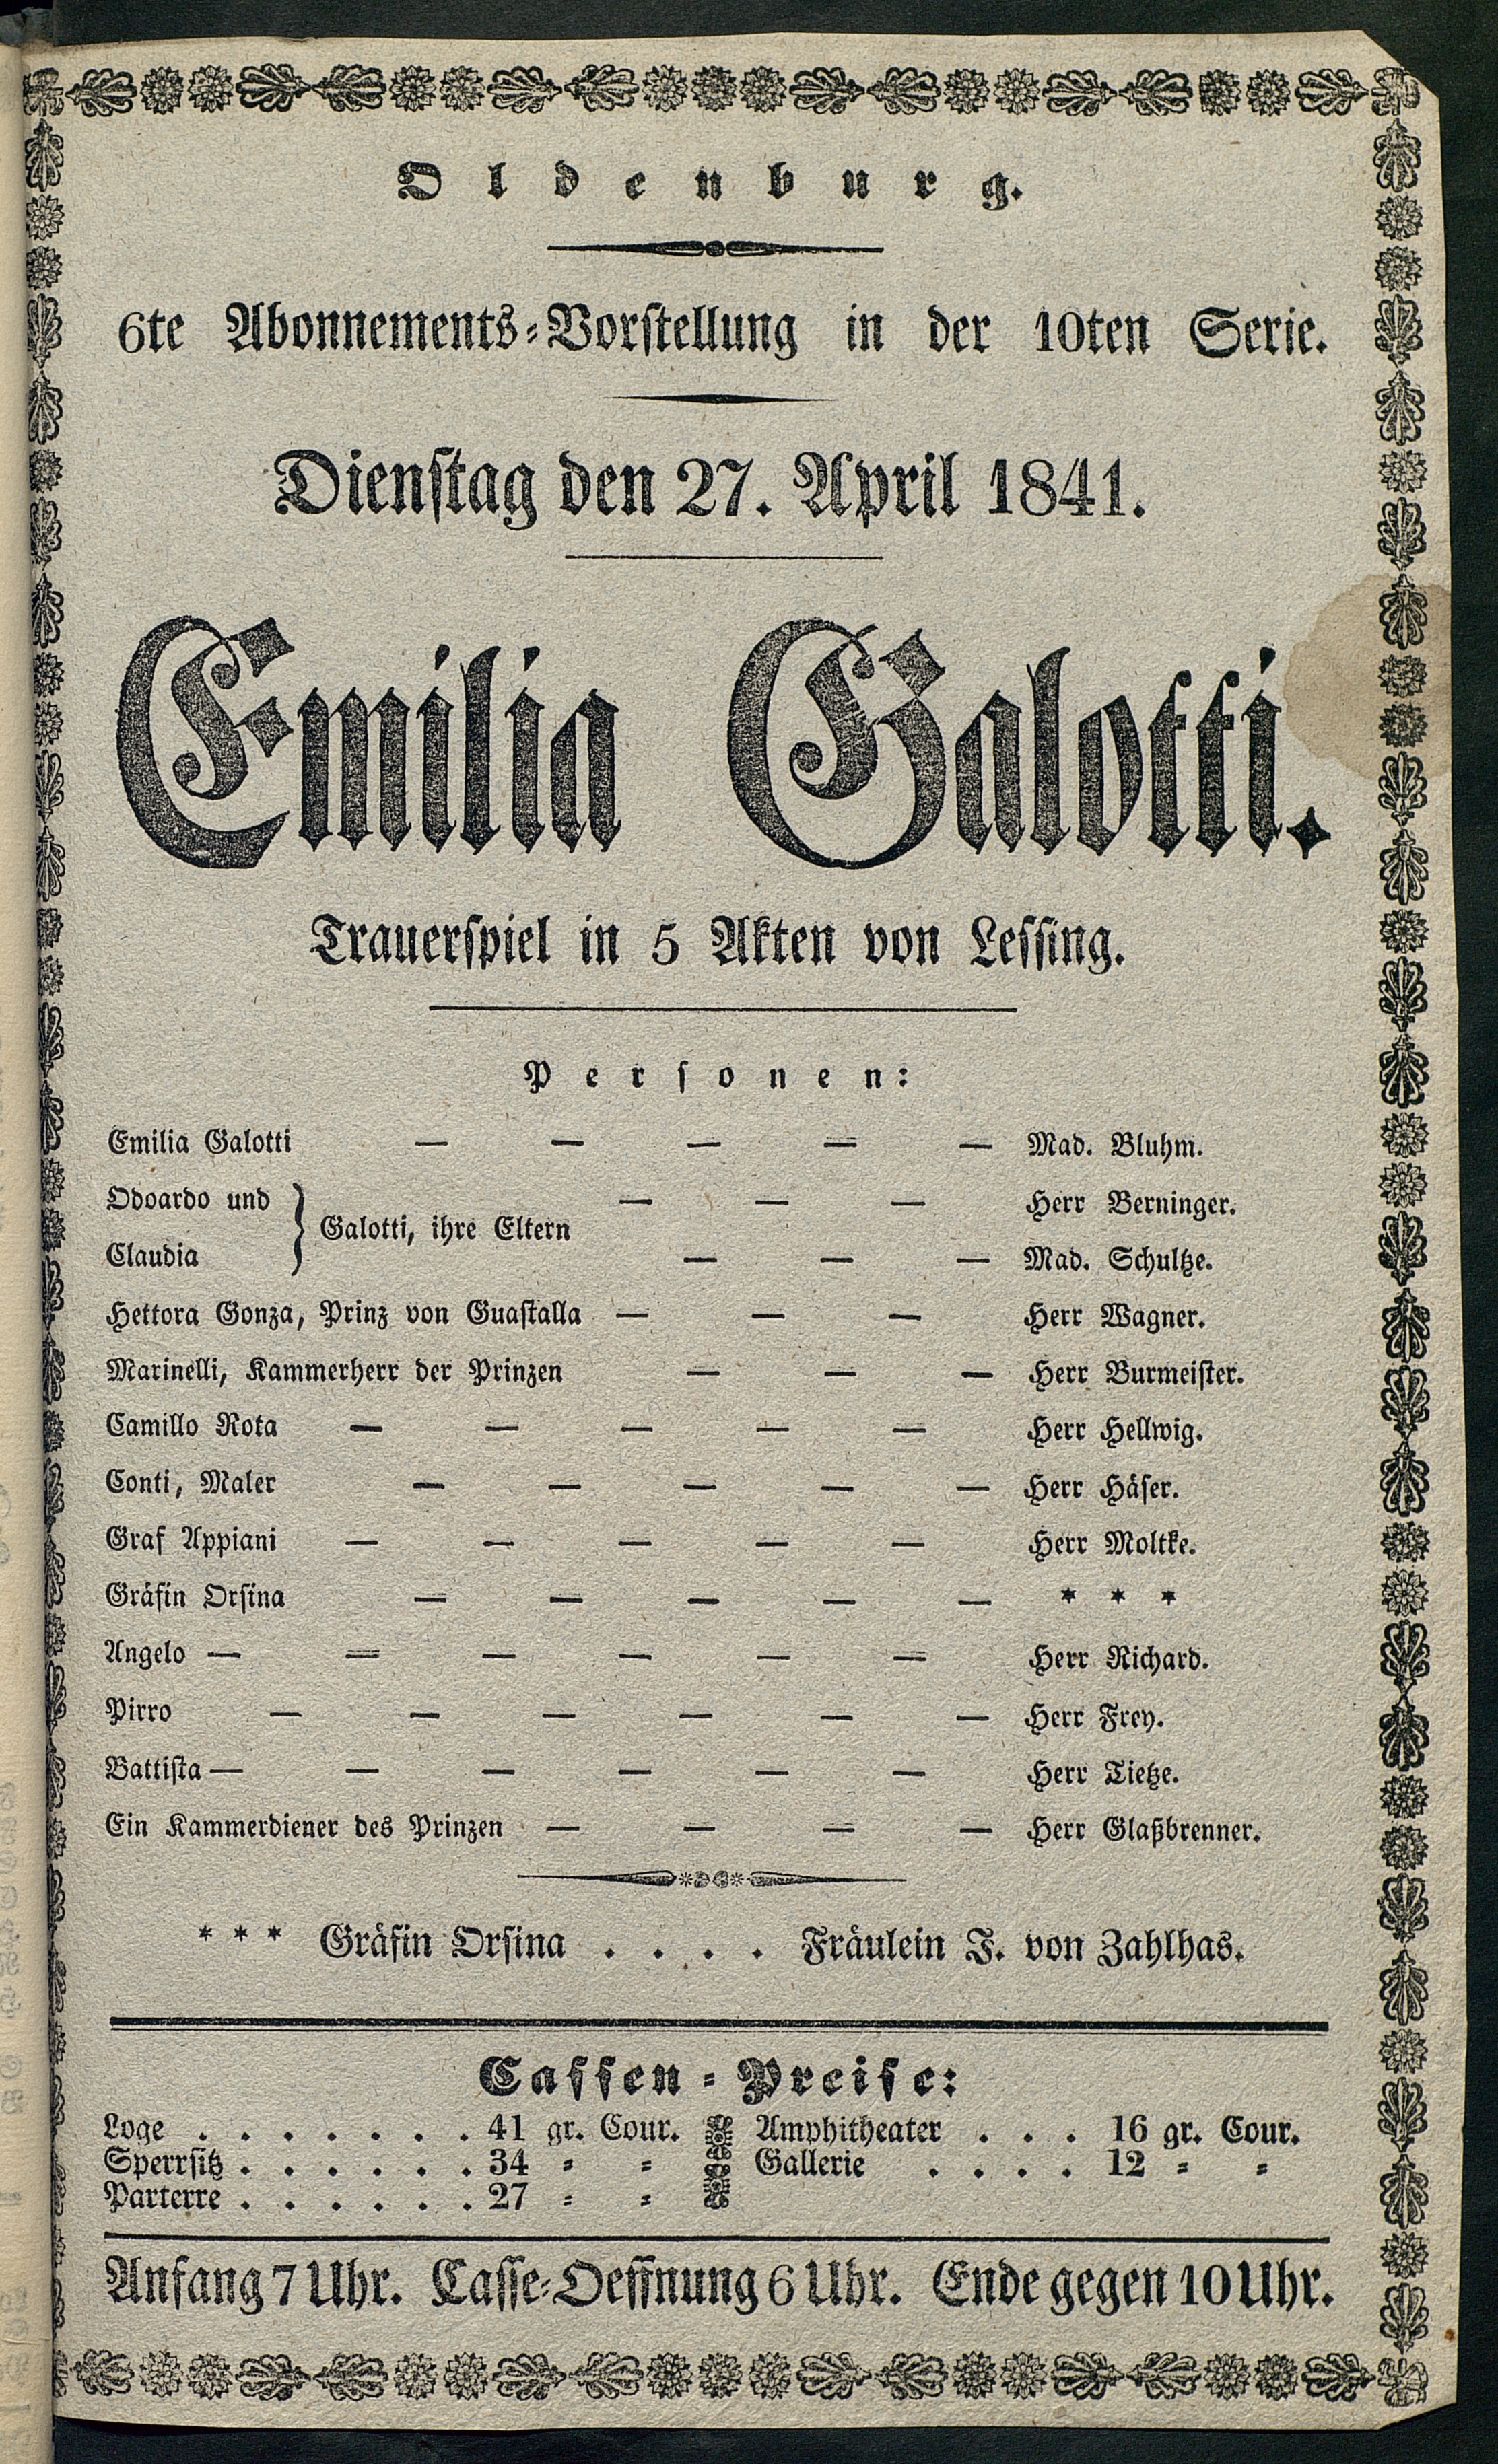 Oldenburg.
6te Abonnements-Vorstellung in der 10ten Serie.
Dienstag den 27. April 1841.
Emilia Galotti.
Trauerspiel in 5 Akten von Lessing.
Personen:
Emilia Galotti — — — — — Mad. Bluhm.
Odoardo und — — — Herr Berninger.
} Galotti, ihre Eltern
Claudia — — — Mad. Schultze.
Hettora Gonza, Prinz von Guastalla — — — Herr Wagner.
Marinelli, Kammerherr der Prinzen — — — Herr Burmeister.
Camillo Rota — — — — — Herr Hellwig.
Conti, Maler — — — — — Herr Häser.
Graf Appiani — — — — — Herr Moltke.
Gräfin Orsina — — — — — * * *
Angelo — — — — — — Herr Richard.
Pirro — — — — — — Herr Frey.
Battista — — — — — — Herr Tietze.
Ein Kammerdiener des Prinzen — — — — Herr Glaßbrenner.
* * * Gräfin Orsina . . . . Fräulein J. von Zahlhas.
Cassen-Preise:
Loge . . . . . . . 41 gr. Cour. Amphitheater . . . 16 gr. Cour.
Sperrsitz . . . . . . 34 = = Gallerie . . . . 12 = =
Parterre . . . . . . 27 = =
Anfang 7 Uhr. Casse-Oeffnung 6 Uhr. Ende gegen 10 Uhr.